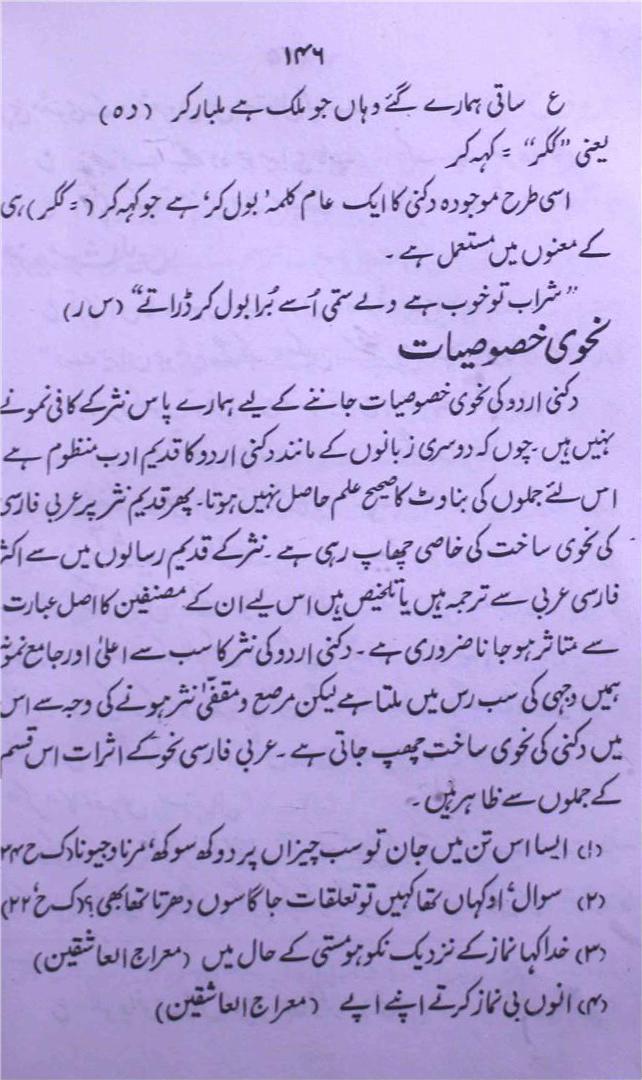 ۱۴۶
ع ساقی ہمارے گئے وہاں جو ملک ہے ملبار کر (د ۵)
یعنی ”ککر“ = کہہ کر
اسی طرح موجودہ دکنی کا ایک عام کلمہ ’بول کر‘ ہے جو کہہ کر (= ککر) ہی
کے معنوں میں مستعمل ہے ۔
”شراب تو خوب ہے ولے ستمی اُسے بُرا بول کر ڈراتے“ (س ر)
نحوی خصوصیات
دکنی اردو کی نحوی خصوصیات جاننے کے لیے ہمارے پاس نثر کے کافی نمونے
نہیں ہیں۔ چوں کہ دوسری زبانوں کے مانند دکنی اردو کا قدیم ادب منظوم ہے
اس لئے جملوں کی بناوٹ کا صحیح علم حاصل نہیں ہوتا۔ پھر قدیم نثر پر عربی فارسی
کی نحوی ساخت کی خاصی چھاپ رہی ہے ۔ نثر کے قدیم رسالوں میں سے اکثر
فارسی عربی سے ترجمہ ہیں یا تلخیص ہیں اس لیے ان کے مصنفین کا اصل عبارت
سے متاثر ہو جانا ضروری ہے ۔ دکنی اردو کی نثر کا سب سے اعلیٰ اور جامع نمونہ
ہمیں وجہی کی سب رس میں ملتا ہے لیکن مرصع و مقفیٰ نثر ہونے کی وجہ سے اس
میں دکنی کی نحوی ساخت چھپ جاتی ہے ۔ عربی فارسی نحو کے اثرات اس قسم
کے جملوں سے ظاہر ہیں ۔
(۱) ایسا اس تن میں جان تو سب چیزاں پر دوکھ سوکھ‘ مرنا و جیونا (ک ح ۲۴
(۲) سوال‘ او کہاں تھا کہیں تو تعلقات جاگا سوں دھرتا تھا بھی؟ (ک ح‘ ۲۲)
(۳) خدا کہا نماز کے نزدیک نکو ہو مستی کے حال میں (معراج العاشقین)
(۴) انوں بی نماز کرتے اپنے اپے (معراج العاشقین)